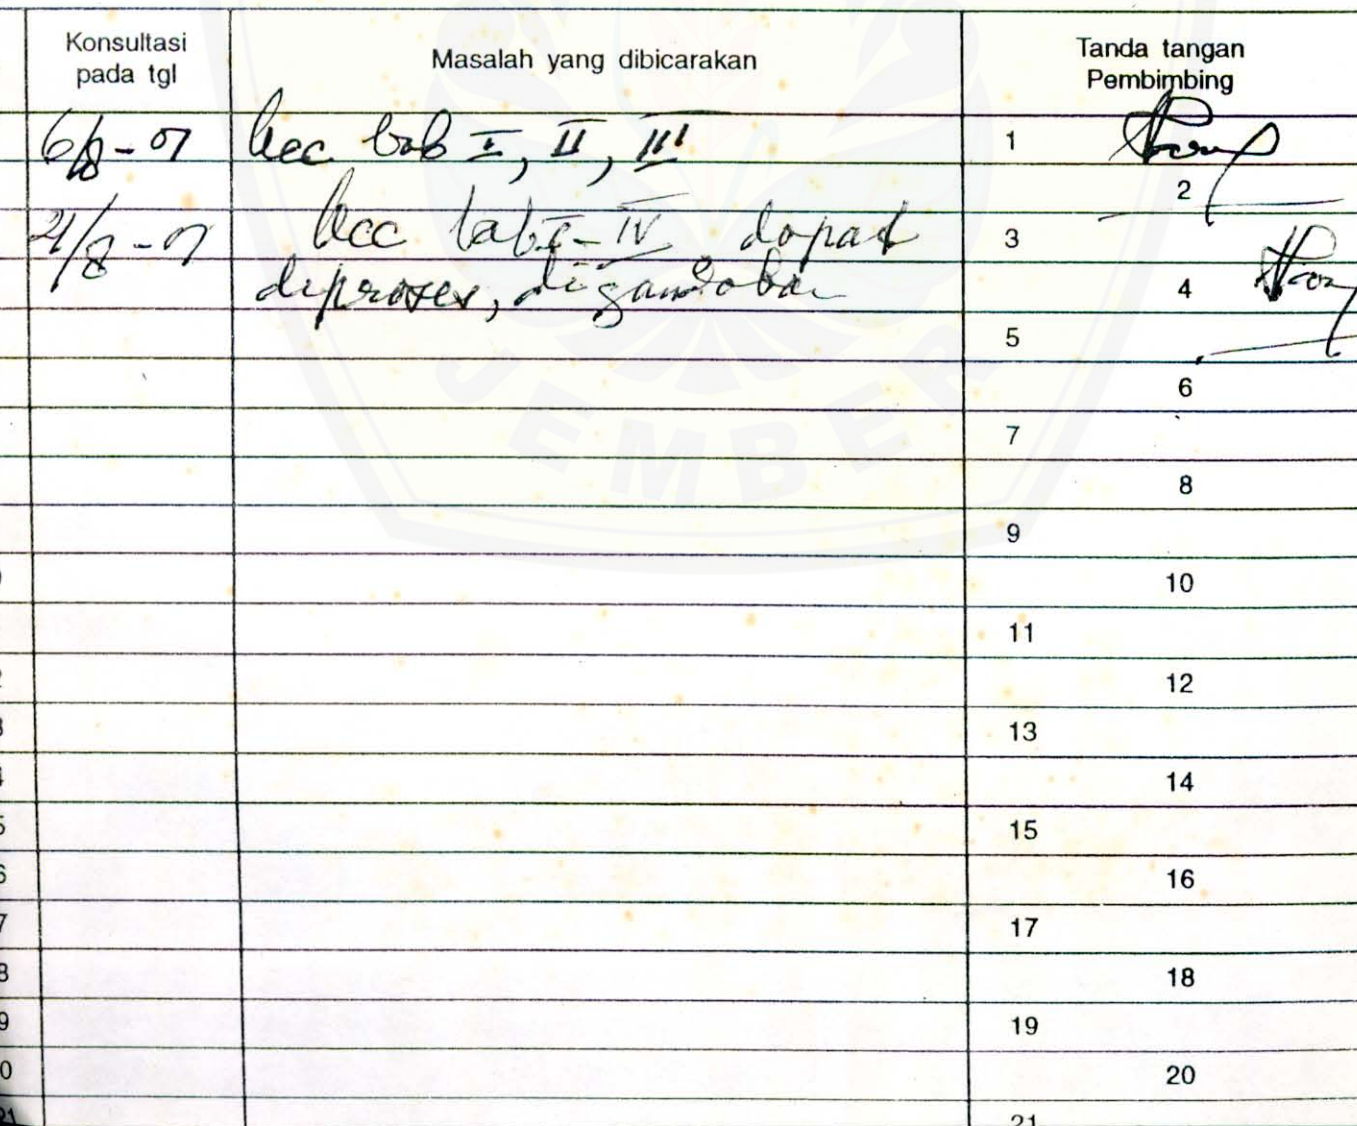 Konsultasi
pada tgl
Masalah yang dibicarakan
Tanda tangan
Pembimbing
6/8-07 Acc bab I, II, III 1
2
21/8-07 Acc bab I-IV dapat 3
diproses, digandakan 4
5
6
7
8
9
10
11
12
13
14
15
16
17
18
19
20
21
JEMBER